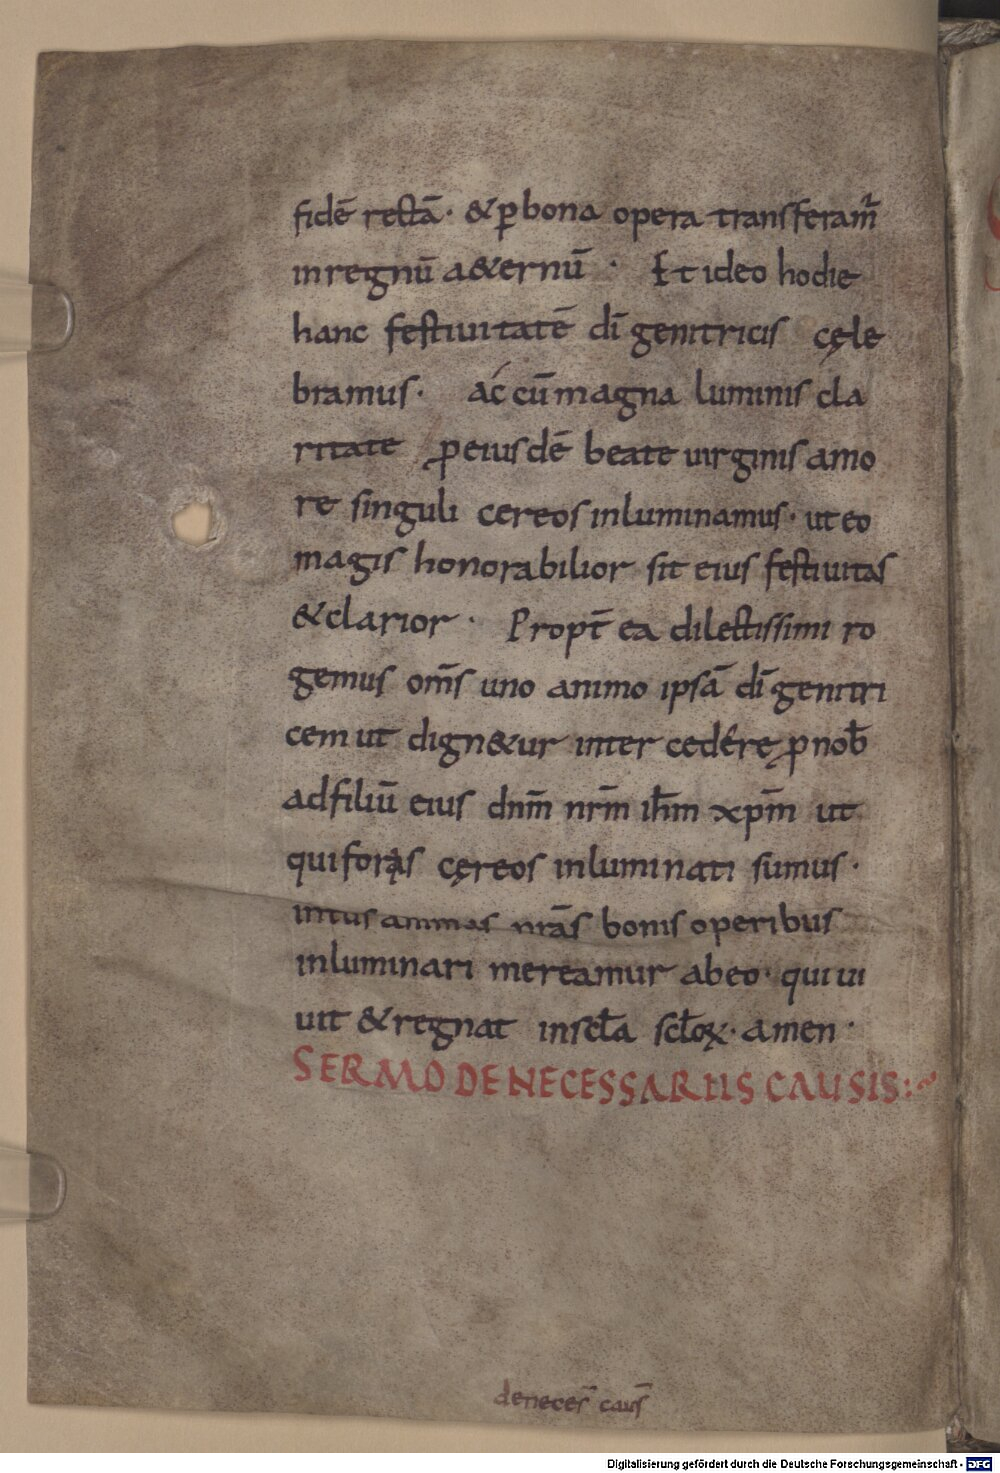 fidē rectā· & ꝑ bona opera transferam̄
in regnū a&ernū · Et ideo hodie
hanc festiuitatē dī genitricis cęle
bramus· ac cū magna luminis cla
ritate ꝓ eiusdē beate uirginis amo
re singuli cereos inluminamus· ut eo
magis honorabilior sit eius festiuitas
& clarior · Propt̄ ea dilectissimi ro
gemus om̄s uno animo ipsā dī genitri
cem ut dign&ur intercedére ꝓ nob̄
ad filiū eius dnm̄ nrm̄ ihm̄ xpm̄ ut
qui foras cęreos inluminati sumus·
intus animas nrās bonis operibus
inluminari mereamur ab eo· qui ui
uit & regnat in scl̄a scl̄oꝝ· amen·
SERMO DE NECESSARIIS CAUSIS:~
de neces̄ caus̄
Digitalisierung gefördert durch die Deutsche Forschungsgemeinschaft - DFG